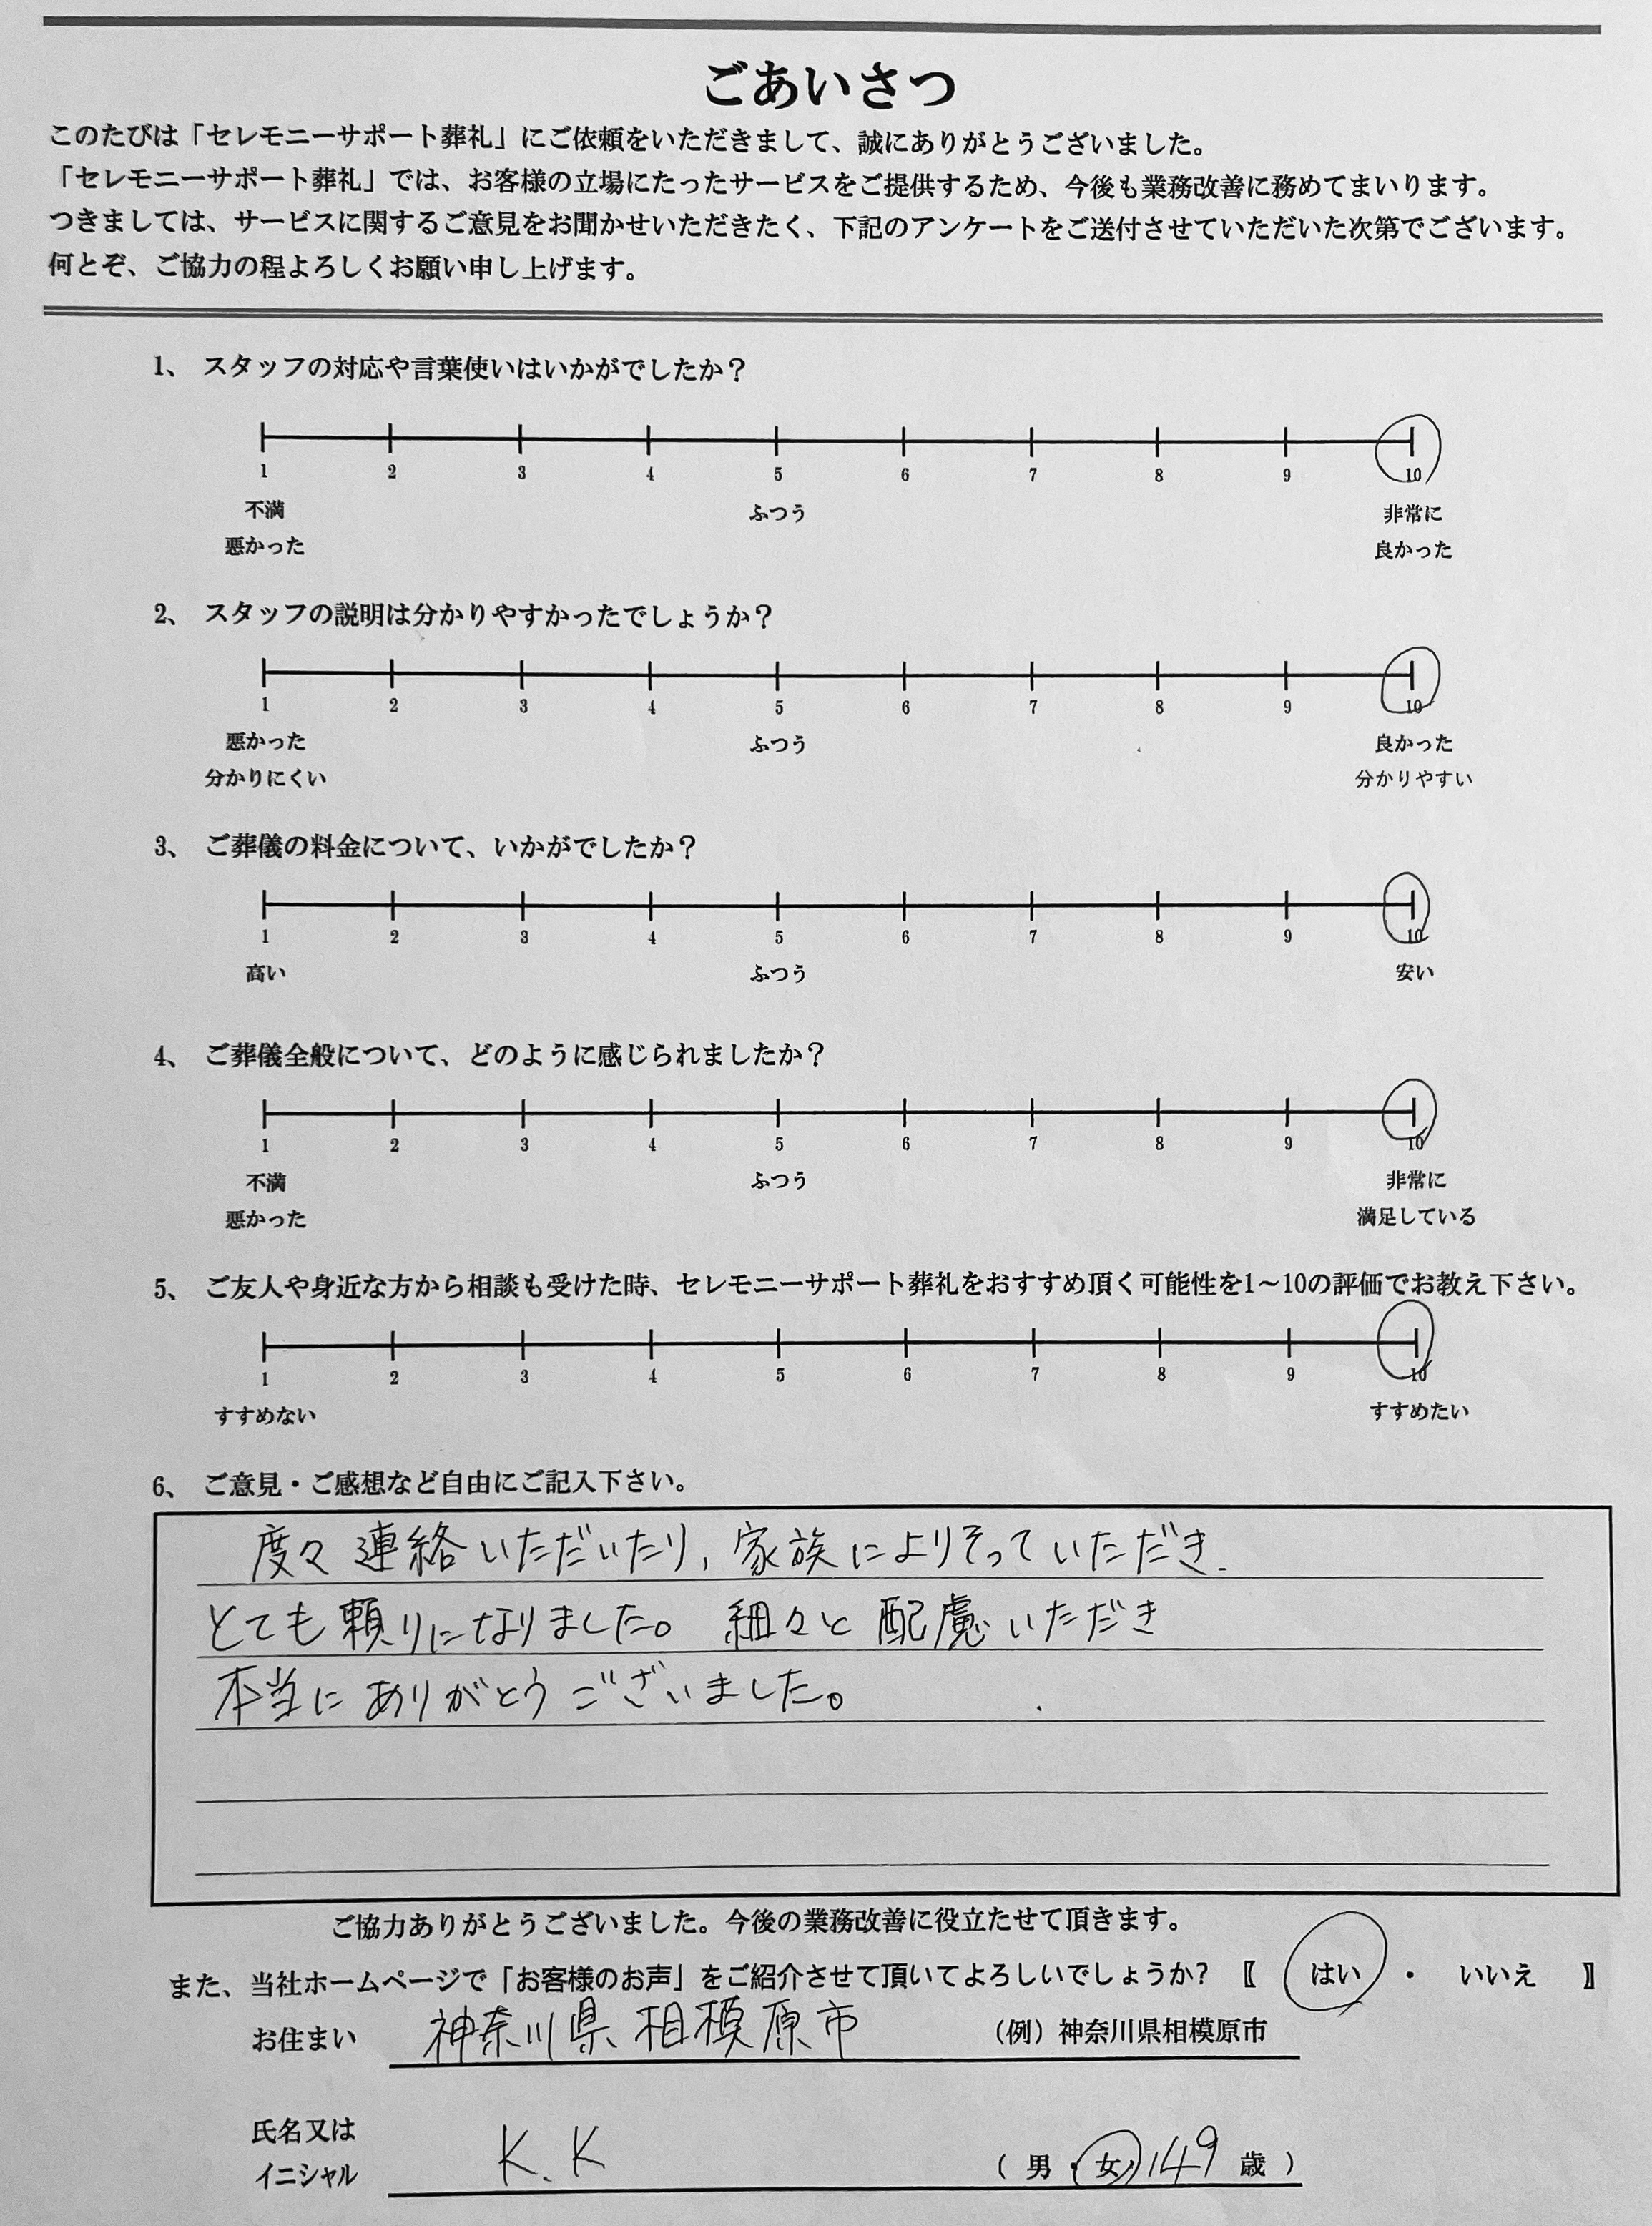 ごあいさつ
このたびは「セレモニーサポート葬礼」にご依頼をいただきまして、誠にありがとうございました。
「セレモニーサポート葬礼」では、お客様の立場にたったサービスをご提供するため、今後も業務改善に務めてまいります。
つきましては、サービスに関するご意見をお聞かせいただきたく、下記のアンケートをご送付させていただいた次第でございます。
何とぞ、ご協力の程よろしくお願い申し上げます。
1、 スタッフの対応や言葉使いはいかがでしたか?
1 2 3 4 5 6 7 8 9 10
不満 ふつう 非常に
悪かった 良かった
2、 スタッフの説明は分かりやすかったでしょうか?
1 2 3 4 5 6 7 8 9 10
悪かった ふつう 良かった
分かりにくい 分かりやすい
3、 ご葬儀の料金について、いかがでしたか?
1 2 3 4 5 6 7 8 9 10
高い ふつう 安い
4、 ご葬儀全般について、どのように感じられましたか?
1 2 3 4 5 6 7 8 9 10
不満 ふつう 非常に
悪かった 満足している
5、 ご友人や身近な方から相談も受けた時、セレモニーサポート葬礼をおすすめ頂く可能性を1~10の評価でお教え下さい。
1 2 3 4 5 6 7 8 9 10
すすめない すすめたい
6、 ご意見・ご感想など自由にご記入下さい。
度々連絡いただいたり、家族によりそっていただき、
とても頼りになりました。 細々と配慮いただき
本当にありがとうございました。
ご協力ありがとうございました。今後の業務改善に役立たせて頂きます。
また、当社ホームページで「お客様のお声」をご紹介させて頂いてよろしいでしょうか? 〖 はい ・ いいえ 〗
お住まい 神奈川県相模原市 (例)神奈川県相模原市
氏名又は
イニシャル K.K ( 男・女・ 49 歳 )